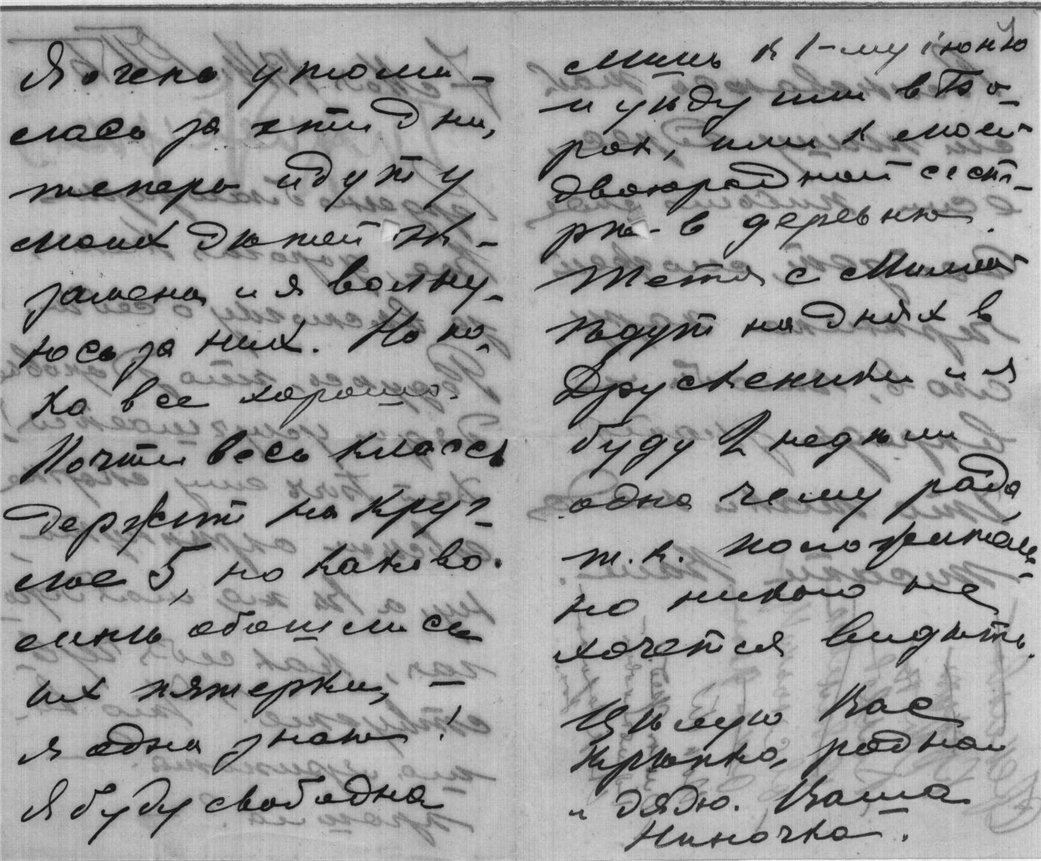 Я очень утоми-
лась за эти дни,
теперь идут у
моих дѣтей эк-
замены и я волну-
юсь за них. Но по-
ка все хорошо.
Почти весь классъ
держит на круг-
лое 5, но каково
мнѣ обошлись
их пятерки, –
я одна знаю!
Я буду свободна
лишь к 1-му iюню
и уѣду или в Бо-
рок, или к моей
двоюродной сест-
рѣ в деревню.
Тетя с
ѣдут на днях в
Друскеники и я
буду 2 недѣли
одна чему рада,
т.к. положитель-
но никого не
хочется видѣть.
Цѣлую Вас
крѣпко, родной
дядя. Ваша
Ниночка.